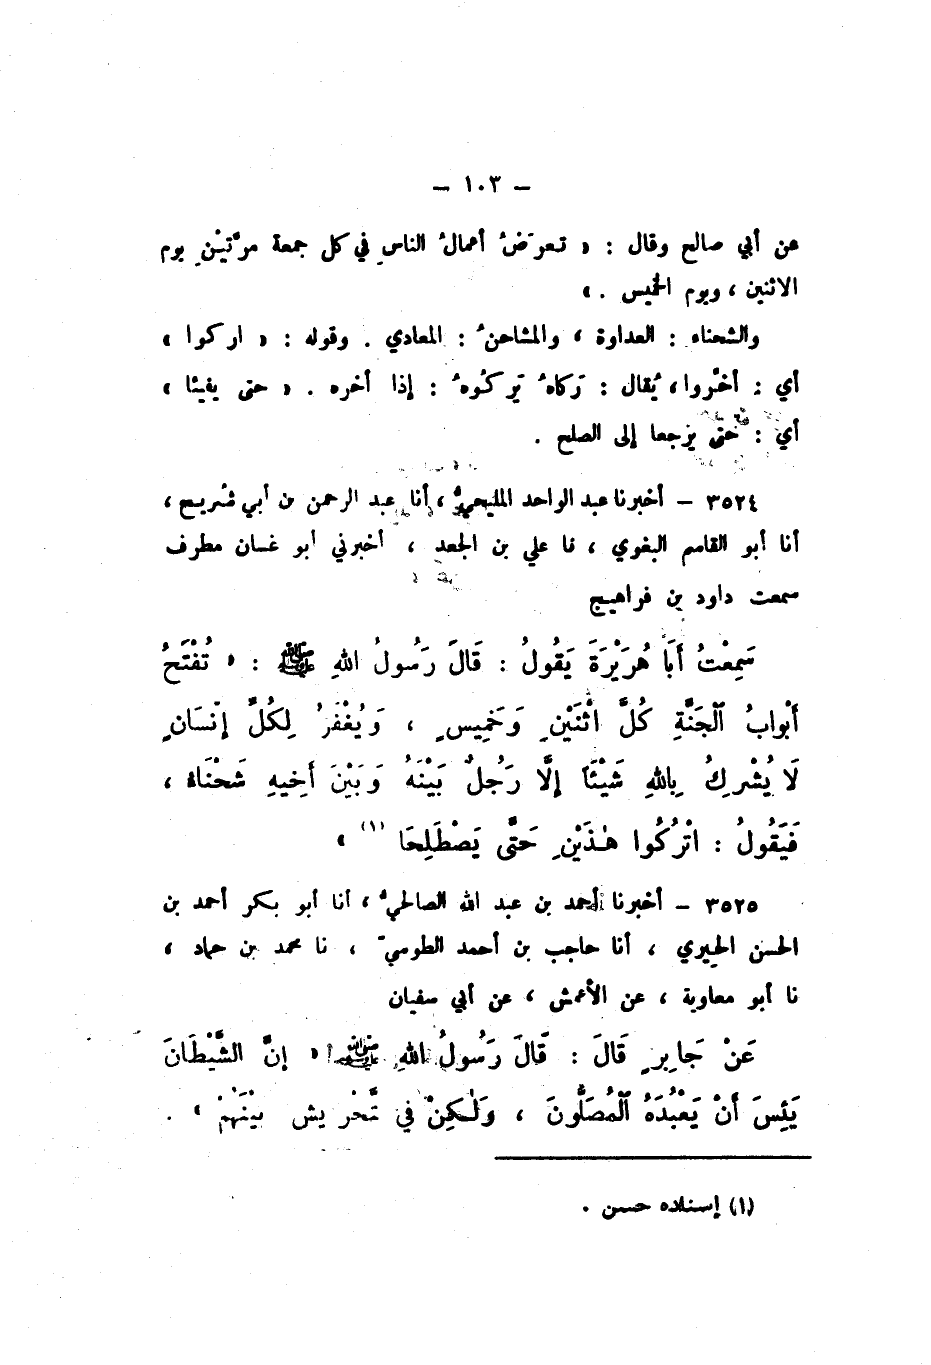 – ١٠٣ –
عن أبي صالح وقال : « تعرَضُ أعمالُ الناسِ في كل جمعة مرَّتيْنِ يوم
الاثنين ، ويوم الخميس . »
والشحناء : العداوة ، والمشاحنُ : المعادي . وقوله : « اركوا »
أي : أخّروا ، يُقال : رَكاهُ يَركُوهُ : إذا أخره . « حتى يفيئا »
أي : حتى يرجعا إلى الصلح .
٣٥٢٤ – أخبرنا عبد الواحد المليحيُّ ، أنا عبد الرحمن بن أبي شُريح ،
أنا أبو القاسم البغوي ، نا علي بن الجعد ، أخبرني أبو غسان مطرف
سمعت داود بن فراهيج
سَمِعْتُ أَبَا هُرَيْرَةَ يَقُولُ : قَالَ رَسُولُ اللهِ ﷺ : « تُفْتَحُ
أَبْوابُ ٱلْجَنَّةِ كُلَّ اثْنَيْنِ وَخَمِيسٍ ، وَيُغْفَرُ لِكُلِّ إنْسَانٍ
لَا يُشْرِكُ بِاللهِ شَيْئَاً إلَّا رَجُلٌ بَيْنَهُ وَبَيْنَ أَخِيهِ شَحْنَاءُ ،
فَيَقُولُ : اتْرُكُوا هٰذَيْنِ حَتَّى يَصْطَلِحَا (١) »
٣٥٢٥ – أخبرنا أحمد بن عبد الله الصالحيُّ ، أنا أبو بكر أحمد بن
الحسن الحيري ، أنا حاجب بن أحمد الطوسيّ ، نا محمد بن حماد ،
نا أبو معاوية ، عن الأعمش ، عن أبي سفيان
عَنْ جَابِرٍ قَالَ : قَالَ رَسُولُ اللهِ ﷺ « إنَّ الشَّيْطَانَ
يَئِسَ أَنْ يَعْبُدَهُ ٱلْمُصَلُّونَ ، وَلٰكِنْ في تَّحْرِيشِ بيْنَهُمْ » .
(١) إسناده حسن .